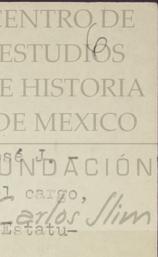 CENTRO DE
6
ESTUDIOS
E HISTORIA
DE MEXICO
osé J. -
FUNDACIÓN
l cargo,
Carlos Slim
Estatu-